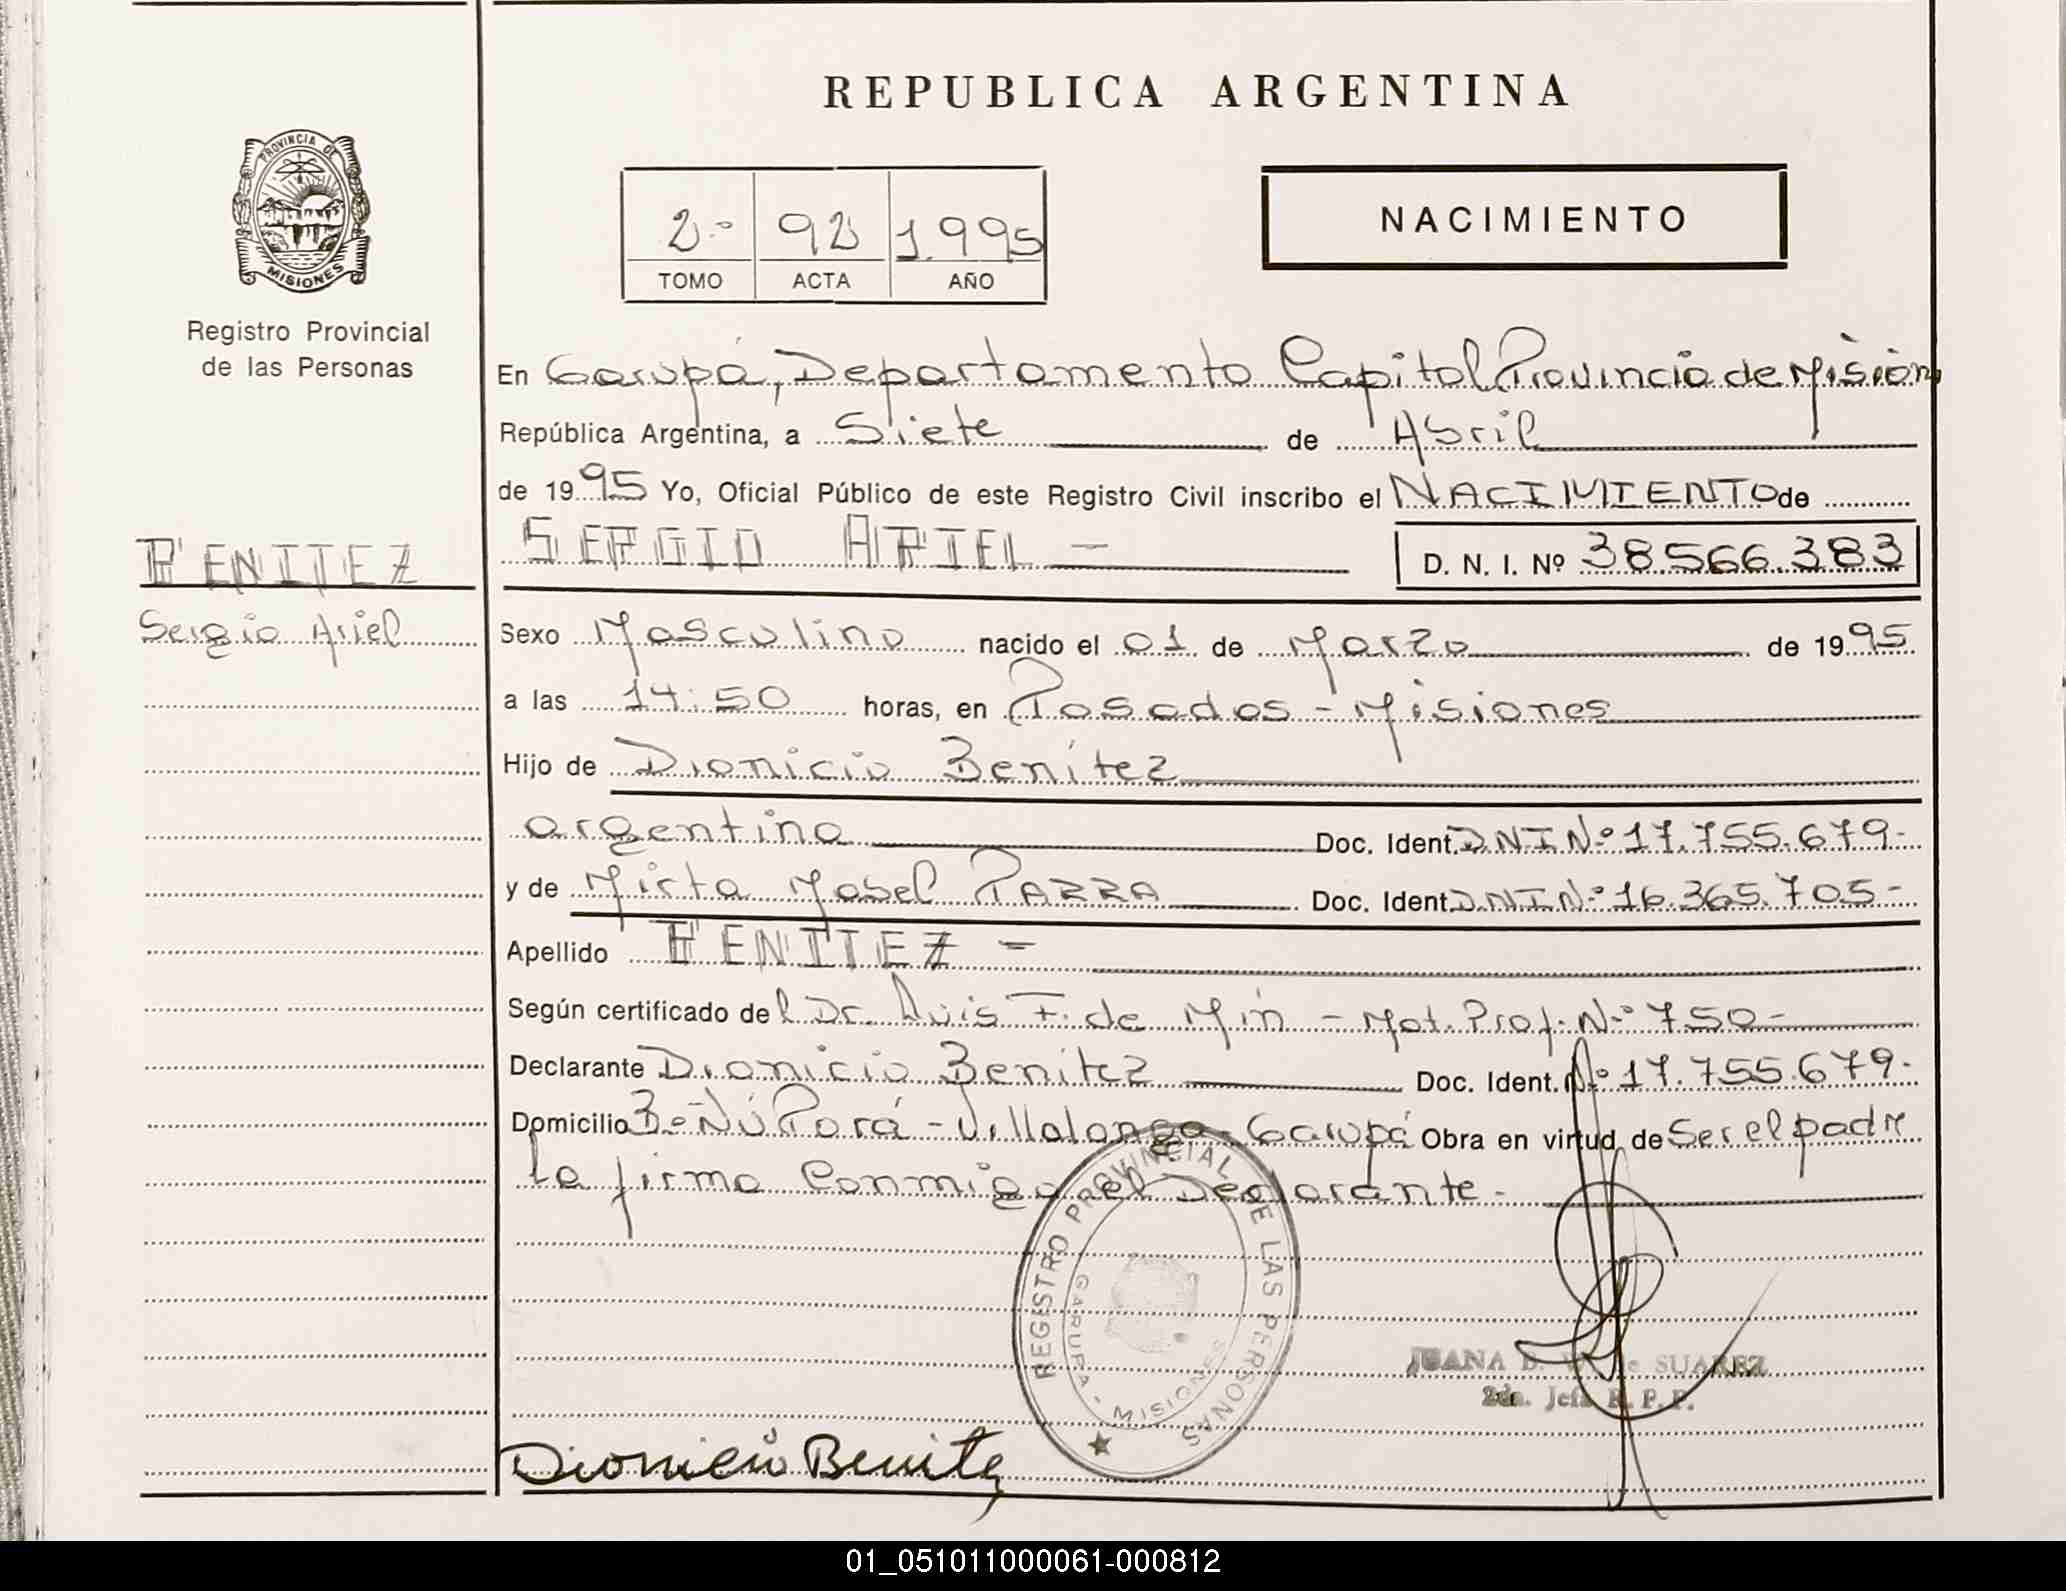 REPUBLICA ARGENTINA
PROVINCIA DE
MISIONES
Registro Provincial
de las Personas
2-
92
1.995
TOMO
ACTA
AÑO
NACIMIENTO
En Garupá, Departamento Capital Provincia de Mision
República Argentina, a Siete de Abril
de 1995 Yo, Oficial Público de este Registro Civil inscribo el NACIMIENTO de
BENITEZ
Sergio Ariel
SERGIO ARIEL - D. N. I. Nº 38566.383
Sexo Masculino nacido el 01 de Marzo de 1995
a las 14:50 horas, en Posadas - Misiones
Hijo de Dionicio Benítez
argentino Doc. Ident. DNI Nº 17.755.679-
y de Mirta Mabel PARRA Doc. Ident. DNI Nº 16.365.705-
Apellido BENITEZ -
Según certificado del Dr. Luis F. de Min - Mat. Prof. Nº 750-
Declarante Dionicio Benítez Doc. Ident. Nº 17.755.679-
Domicilio Bº Ñú Porá - Villalonga - Garupá Obra en virtud de Ser el padre
la firma Conmigo el Declarante -
REGISTRO PROVINCIAL DE LAS PERSONAS
GARUPA - MISIONES
JUANA de SUAREZ
2da. Jefa R. P. P.
Dionicio Benitez
01_051011000061-000812